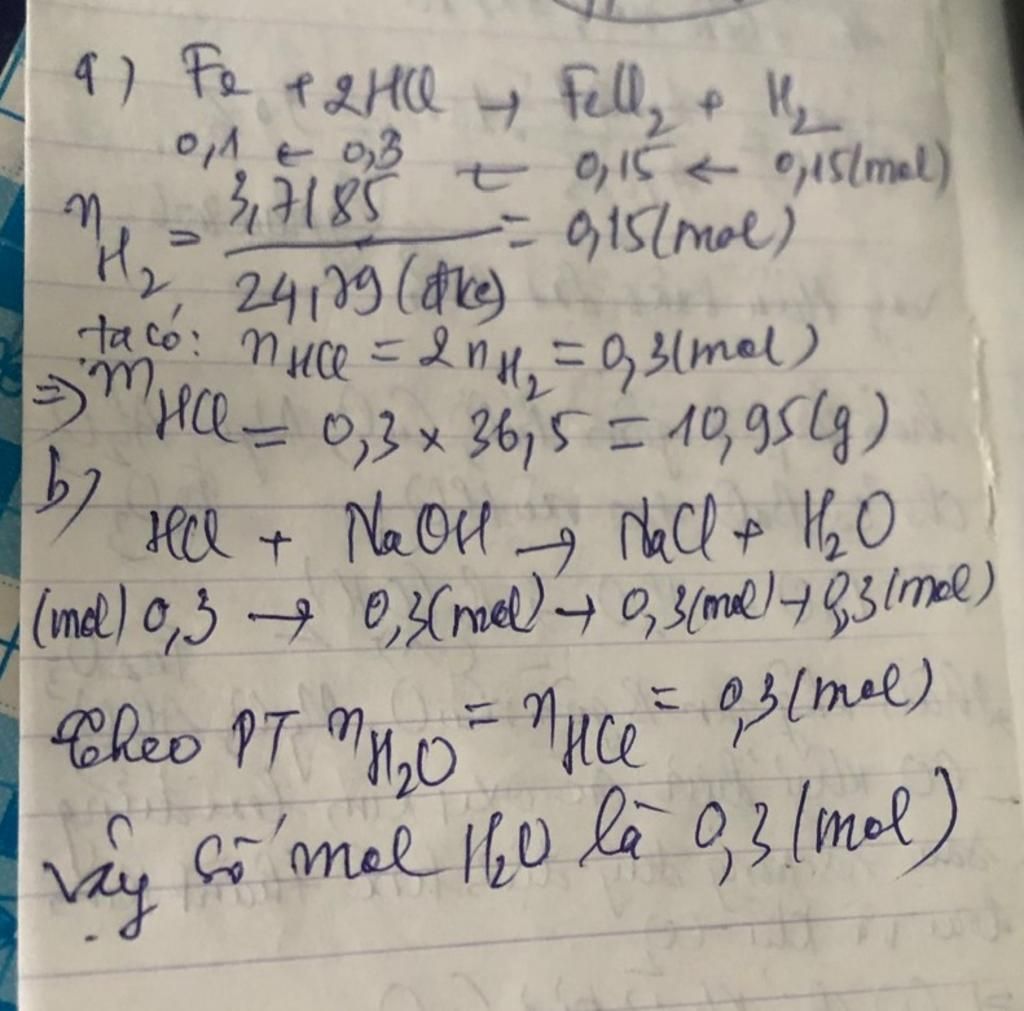 a) Fe + 2HCl → FeCl₂ + H₂
0,1 ← 0,3 ← 0,15 ← 0,15(mol)
n_H₂ = 3,7185 / 24,79 (đkc) = 0,15(mol)
ta có: n_HCl = 2n_H₂ = 0,3(mol)
=> m_HCl = 0,3 × 36,5 = 10,95(g)
b)
HCl + NaOH → NaCl + H₂O
(mol) 0,3 → 0,3(mol) → 0,3(mol) → 0,3(mol)
Theo PT n_H₂O = n_HCl = 0,3(mol)
Vậy số mol H₂O là 0,3(mol)